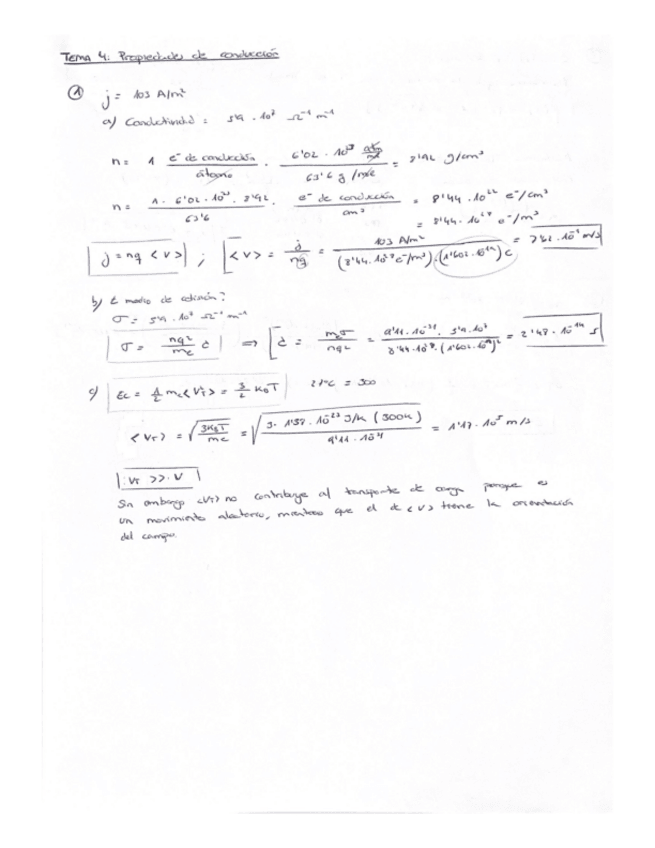 Tema 4: Propiedades de conducción
① j = 103 A/m²
a) Conductividad = 5'9 · 10⁷ Ω⁻¹ m⁻¹
n = 1 e⁻ de conducción / átomo · 6'02 · 10²³ / 63'6 g/mol = 8'92 g/cm³
n = 1 · 6'02 · 10²³ · 8'92 / 63'6 · e⁻ de conducción / cm³ = 8'44 · 10²² e⁻/cm³
= 8'44 · 10²⁸ e⁻/m³
j = nq <v> ; <v> = j / nq = 103 A/m² / (8'44 · 10²⁸ e⁻/m³) · (1'602 · 10⁻¹⁹) C = 7'62 · 10⁻⁹ m/s
b) t medio de colisión?
σ = 5'9 · 10⁷ Ω⁻¹ m⁻¹
σ = nq² / me τ ⇒ τ = me σ / nq² = 9'11 · 10⁻³¹ · 5'9 · 10⁷ / 8'44 · 10²⁸ · (1'602 · 10⁻¹⁹)² = 2'48 · 10⁻¹⁴ s
c) Ec = 1/2 me <VT²> = 3/2 KBT 27ºC = 300
<VT> = √3KBT / me = √3 · 1'38 · 10⁻²³ J/K (300K) / 9'11 · 10⁻³¹ = 1'17 · 10⁵ m/s
VT >> V
Sin embargo <VT> no contribuye al transporte de carga porque es
un movimiento aleatorio, mientras que el de <v> tiene la orientación
del campo.